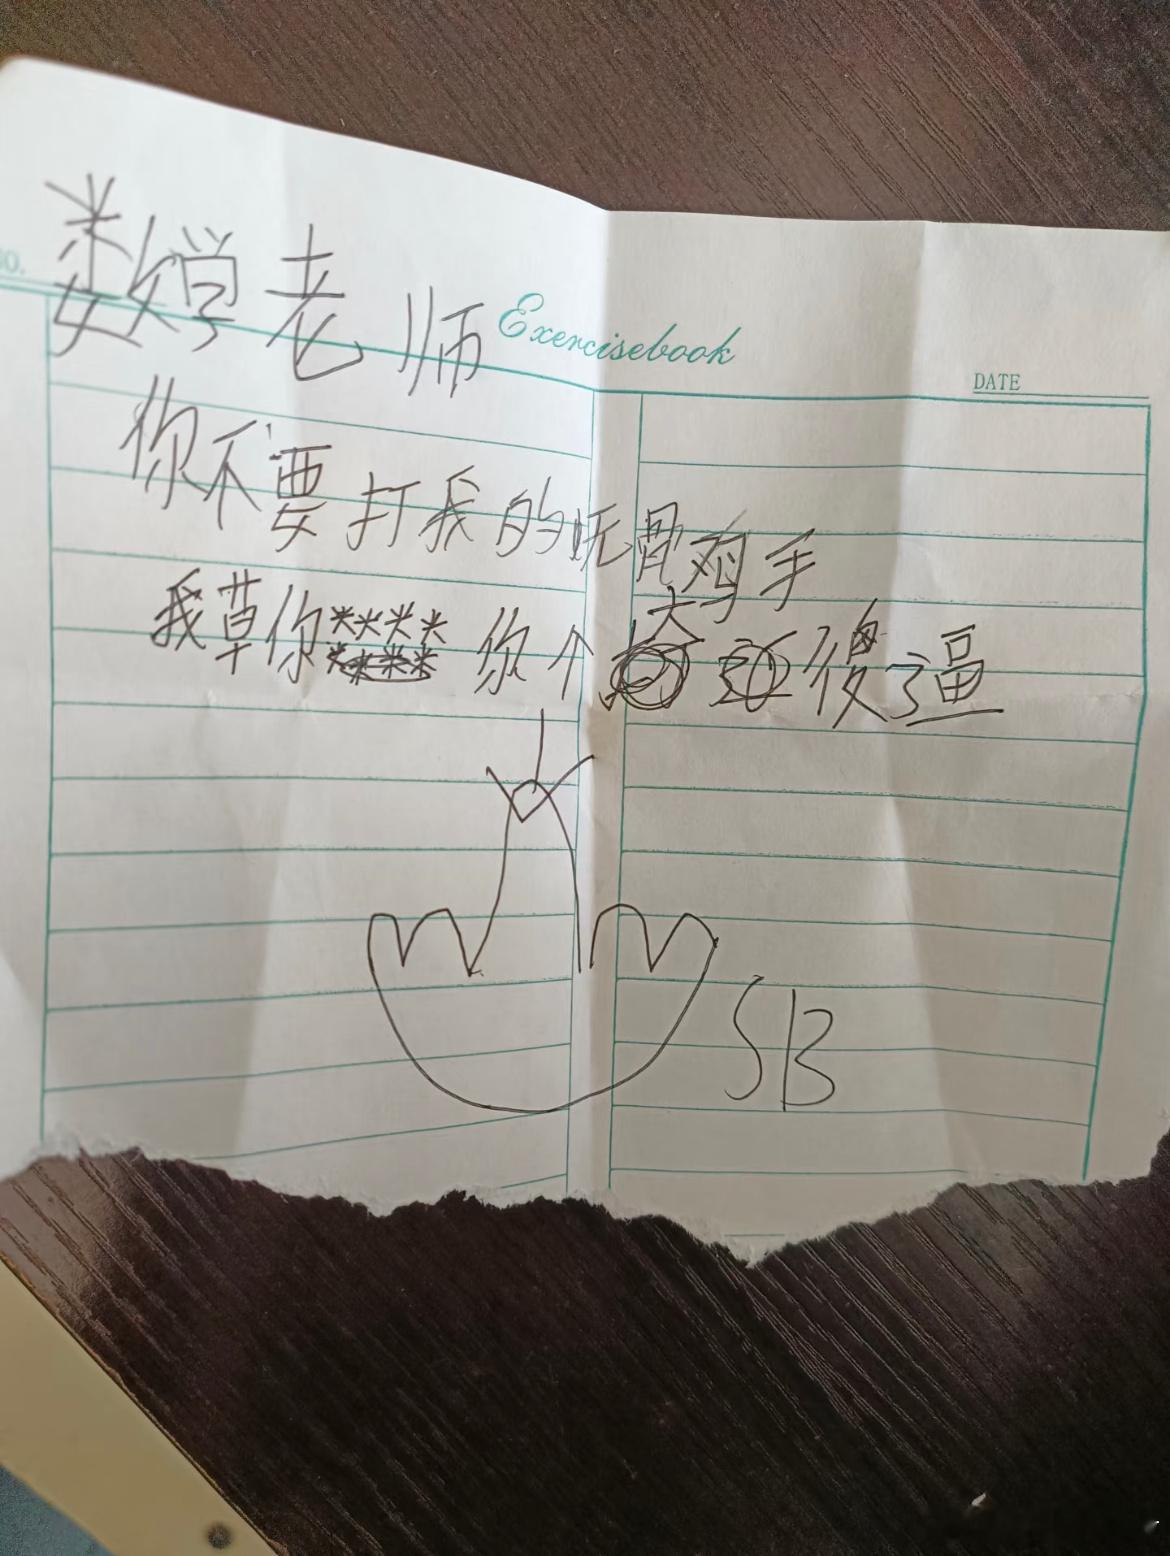 NO.
数学老师
Exercisebook
DATE
你不要打我的呒骨鸡手
我草你******** 你个大傻逼
SB